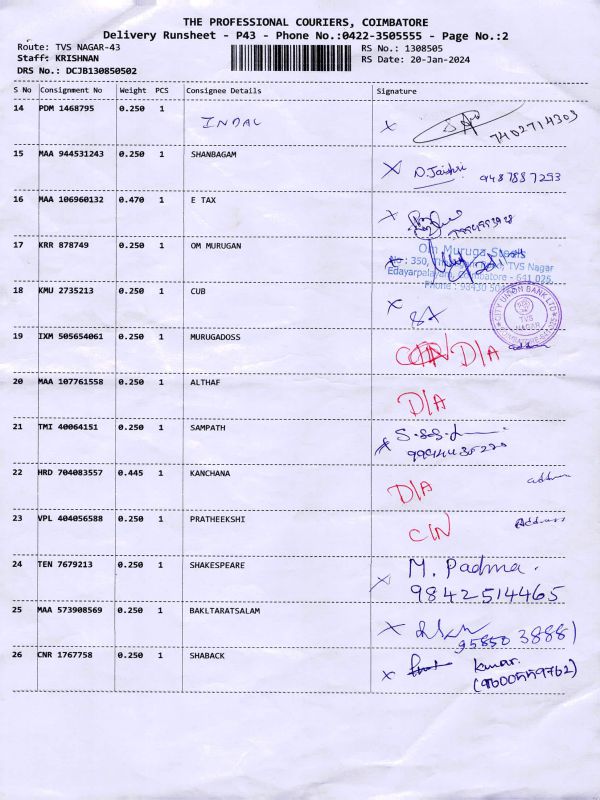 THE PROFESSIONAL COURIERS, COIMBATORE
Delivery Runsheet - P43 - Phone No.:0422-3505555 - Page No.:2
Route: TVS NAGAR-43 RS No.: 1308505
Staff: KRISHNAN RS Date: 20-Jan-2024
DRS No.: DCJB130850502
S No Consignment No Weight PCS Consignee Details Signature
14 PDM 1468795 0.250 1 INDAL X 7402714303
15 MAA 944531243 0.250 1 SHANBAGAM X D.Jaishri
9487887253
16 MAA 106960132 0.470 1 E TAX X
17 KRR 878749 0.250 1 OM MURUGAN Om Muruga
No : 350, TVS Nagar
Edayarpalayam, Coimbatore - 641 025
Phone : 98430
18 KMU 2735213 0.250 1 CUB X CITY UNION BANK LTD
TVS
NAGAR
19 IXM 505654061 0.250 1 MURUGADOSS D/A
20 MAA 107761558 0.250 1 ALTHAF D/A
21 TMI 40064151 0.250 1 SAMPATH X
22 HRD 704083557 0.445 1 KANCHANA D/A
23 VPL 404056588 0.250 1 PRATHEEKSHI C/N Address
24 TEN 7679213 0.250 1 SHAKESPEARE X M. Padma.
9842514465
25 MAA 573908569 0.250 1 BAKLTARATSALAM X
95850 38881
26 CNR 1767758 0.250 1 SHABACK X Kumar.
(9600559762)